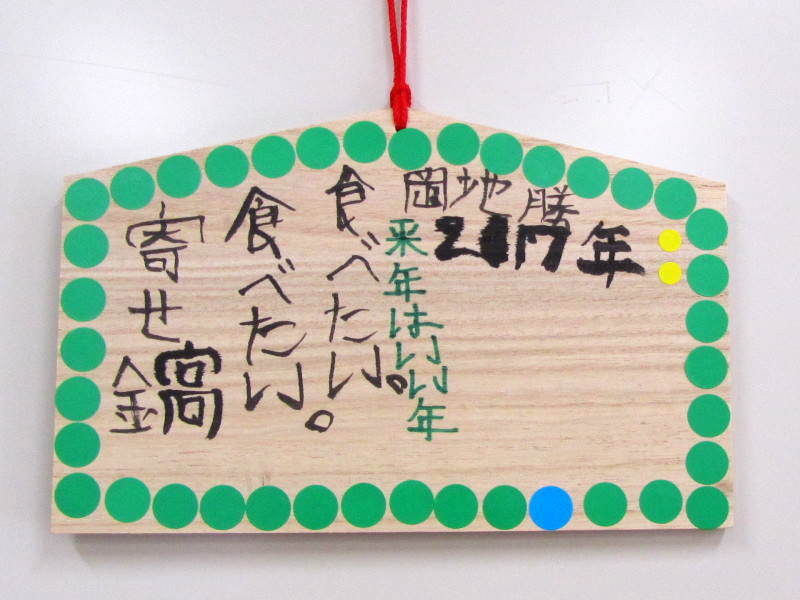 岡地勝
2017年
来年はいい年
食べたい。
食べたい。
寄せ鍋